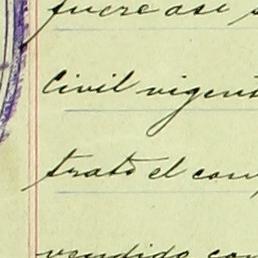 fuere así
Civil vigent
trato el com
vendido con